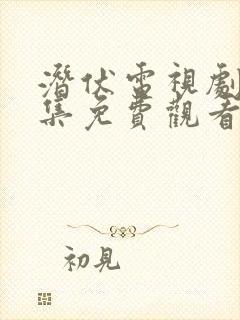 潛伏電視劇
集免費觀看
初見